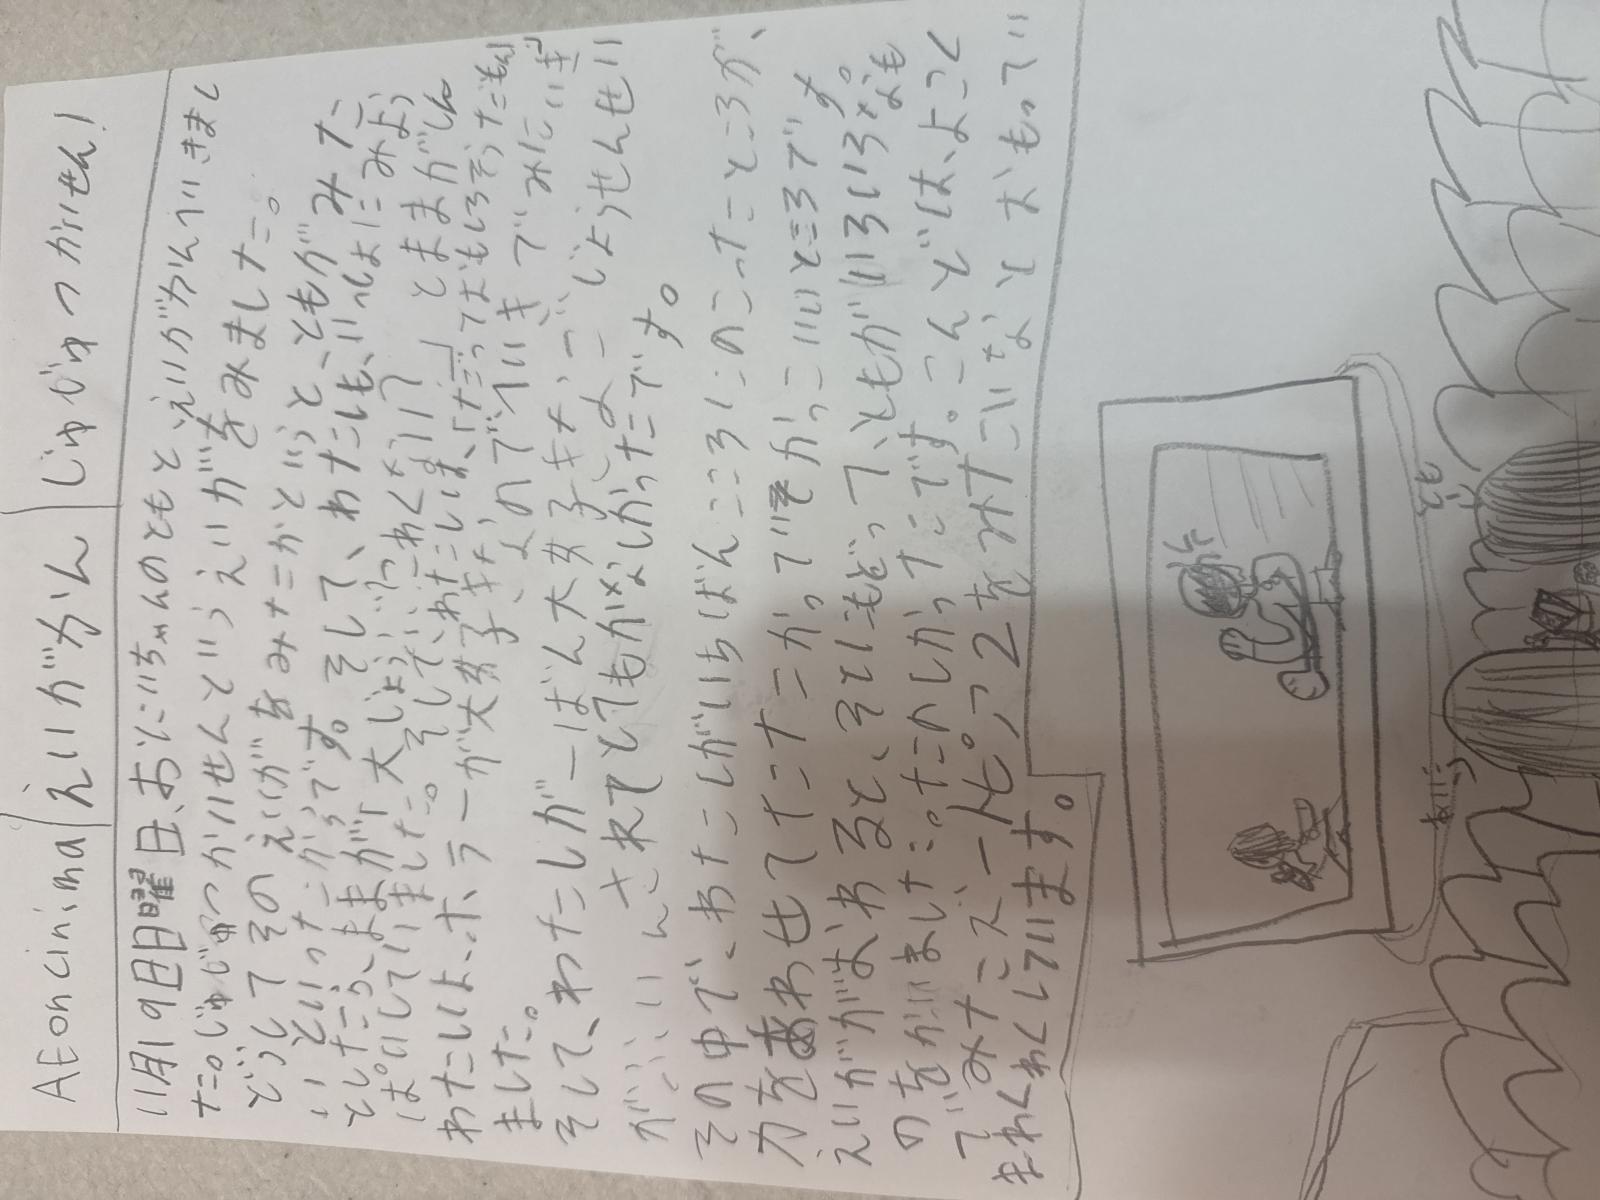 AEoncinima えいがかん じゅじゅつかいせん!
11月19日日曜日、おにいちゃんのともと、えいがかんへいきまし
た。じゅじゅつかいせんというえいがをみました。
どうしてそのえいがをみたかというと、ともがみた
いといったからです。そして、わたしも、いっしょにみよう
としたら、ままが「大じょうぶ?こわくない?」とままがしん
ぱいしていました。そしで、わたしは、「だっておもしろそうだもん」
わたしいは、ホラーが大好きなのでへいきでみにいき
ました。
そして、わたしが一ばん大好きな、ごじょうせんせい
がふういんされてとてもかなしかったです。
その中で、わたしがいちばんこころにのこったところが、
力をあわせてたたかってかっこいいところです
えいががおわると、そとにもどって、ともがいろいろなも
のをかいました。たのしかったです。こんどは、よこく
でみたズートピア2をみたいなとおもってい
まわくわくしています。